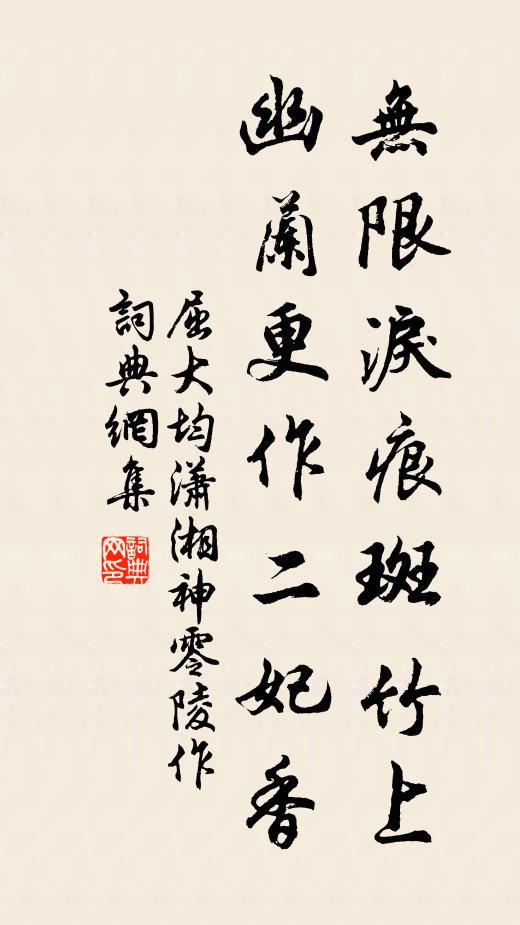 無限淚痕斑竹上
幽蘭更作二妃香
屈大均瀟湘神零陵作
詞典網集
詞典网印